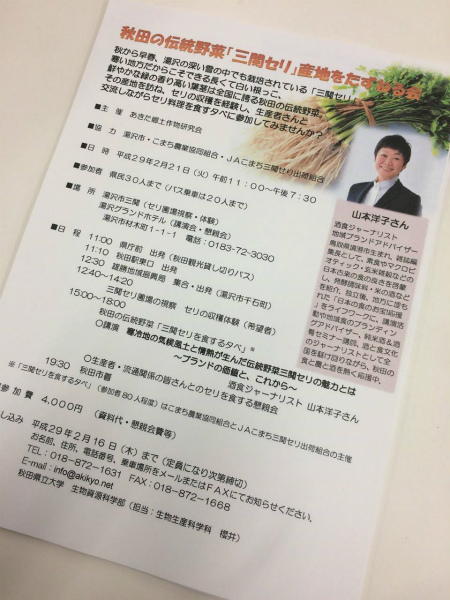 秋田の伝統野菜「三関セリ」産地をたずねる会
秋から早春、湯沢の深い雪の中でも栽培されている「三関セリ」。
寒い地方だからこそできる長くて白い根っこ、
鮮やかな緑の香り高い葉茎は全国に誇る秋田の伝統野菜。
その産地を訪ね、セリの収穫を経験し、生産者さんと
交流しながらセリ料理を食す夕べに参加してみませんか?
■主 催 あきた郷土作物研究会
■協 力 湯沢市・こまち農業協同組合・JAこまち三関セリ出荷組合
■日 時 平成29年2月21日(火)午前11:00~午後7:30
■参加者 県民30人まで(バス乗車は20人まで)
■場 所 湯沢市三関(セリ圃場視察・体験)
湯沢グランドホテル(講演会・懇親会)
湯沢市材木町1-1-1 電話:0183-72-3030
■日 程 11:00 県庁前 出発(秋田観光貸し切りバス)
11:10 秋田駅東口 出発
12:30 雄勝地域振興局 集合・出発(湯沢市千石町)
12:40~14:20
三関セリ圃場の視察 セリの収穫体験(希望者)
15:00~18:00
秋田の伝統野菜「三関セリを食する夕べ」※
○講演 寒冷地の気候風土と情熱が生んだ伝統野菜三関セリの魅力とは
~ブランドの価値と、これから~
酒食ジャーナリスト 山本洋子さん
○生産者・流通関係の皆さんとのセリを食する懇親会
19:30 秋田市着
※「三関セリを食する夕べ」(参加者80人程度)はこまち農業協同組合とJAこまち三関セリ出荷組合の主催
参加費 4,000円 (資料代・懇親会費等)
し込み 平成29年2月16日(木)まで(定員になり次第締切)
お名前、住所、電話番号、乗車場所をメールまたはFAXにてお知らせください。
TEL:018-872-1631 FAX:018-872-1668
E-mail:info@akikyo.net
秋田県立大学 生物資源科学部(担当:生物生産科学科 櫻井)
山本洋子さん
酒食ジャーナリスト
地域ブランドアドバイザー
鳥取県境港市生まれ、雑誌編
集長として、素食やマクロビ
オティック・玄米雑穀などの
日本古来の食の良さを啓蒙
し、発酵調味料・米の酒など
を紹介。独立後、地方に埋も
れた「日本の食のお宝応援」
をライフワークに、講演活
動や地域食のブランディン
グアドバイザー、純米酒&酒
肴セミナー講師、酒と食文化
のジャーナリストとして全
国を駆け回りながら、秋田の
食と農と酒を熱く応援中。